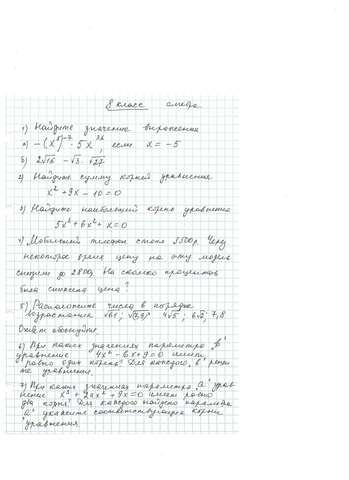 8 класс
1) Найдите значение выражения
а) -(x⁵)⁻⁷ · 5x³⁶, если x = -5
б) 2√16 - √3 · √27
2) Найдите сумму корней уравнения
x² + 9x - 10 = 0
3) Найдите наибольший корень уравнения
5x³ + 6x² + x = 0
4) Мобильный телефон стоил 3500р. Через
некоторое время цену на эту модель
снизили до 2800р. На сколько процентов
была снижена цена?
5) Расположите числа в порядке
возрастания √61; 4√5; 6√2; 7,8
Ответ обоснуйте.
6) При каких значениях параметра "в"
уравнение 4x² - вx + 9 = 0 имеет
ровно один корень? Для каждого "в" реши
те уравнение.
7) При каких значениях параметра "а" урав
нение x³ + 2ax² + 9x = 0 имеет ровно
два корня? Для каждого найдено параметра
"а" укажите соответствующие корни
уравнения.